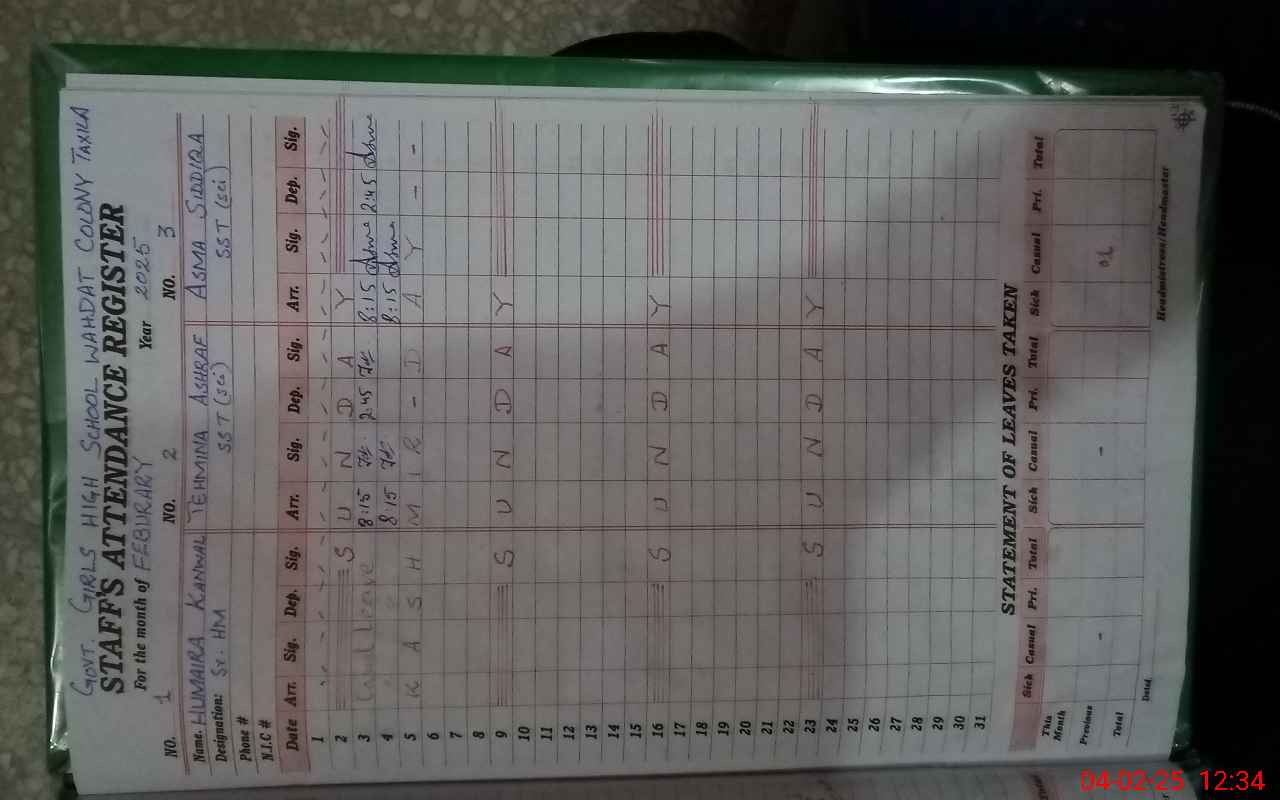 GOVT. GIRLS HIGH SCHOOL WAHDAT COLONY TAXILA
STAFF'S ATTENDANCE REGISTER
For the month of FEBURARY Year 2025
NO. 1 NO. 2 NO. 3
Name. HUMAIRA KANWAL TEHMINA ASHRAF ASMA SIDDIQA
Designation: Sr. HM SST (sci) SST (sci)
Phone #
N.I.C #
Date Arr. Sig. Dep. Sig. Arr. Sig. Dep. Sig. Arr. Sig. Dep. Sig.
1
2 S U N D A Y
3 leave 8:15 2:45 8:15 2:45
4 8:15 8:15
5 K A S H M I R - D A Y - -
6
7
8
9 S U N D A Y
10
11
12
13
14
15
16 S U N D A Y
17
18
19
20
21
22
23 S U N D A Y
24
25
26
27
28
29
30
31
STATEMENT OF LEAVES TAKEN
Sich Casual Pri. Total Sich Casual Pri. Total Sich Casual Pri. Total
This Month
Previous - - 01
Total
Dated. Headmistress/Headmaster
04-02-25 12:34